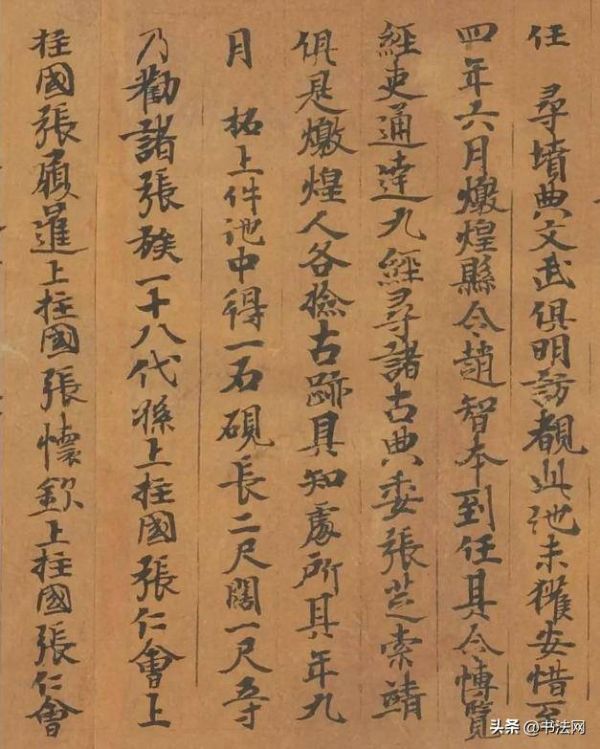 任 尋墳典文武俱明訪覩此池未獲安惜至
四年六月燉煌縣令趙智本到任其令博覽
經史通達九經尋諸古典委張芝索靖
俱是燉煌人各撿古跡具知處所其年九
月 拓上件池中得一石硯長二尺闊一尺五寸
乃勸諸張族一十八代孫上柱國張仁會上
柱國張履暹上柱國張懷欽上柱國張仁會
头条 @书法网